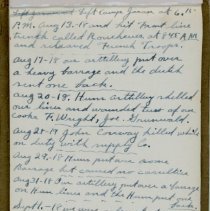 Left Camp Janin at 6:15
P.M. Aug 13-18 and hit Front Line
trench called Ranchwer at 8:45 A.M.
and relieved French Troops.
Aug 17-18 our artillery put over
a heavy barrage and the dutch
sent one back.
Aug 20-18. Hun artillery shelled
our lines and wounded two of us
Cooke F. Wright, Joe. Grunwald.
Aug 21-18 John Conway killed while
on duty with supply Co.
Aug 29-18 Hun put over some
Barrage but caused no casualties
Aug 31-18 our artillery put over a barrage
on Hun lines and the Hun put one
back.
Sept 1-18